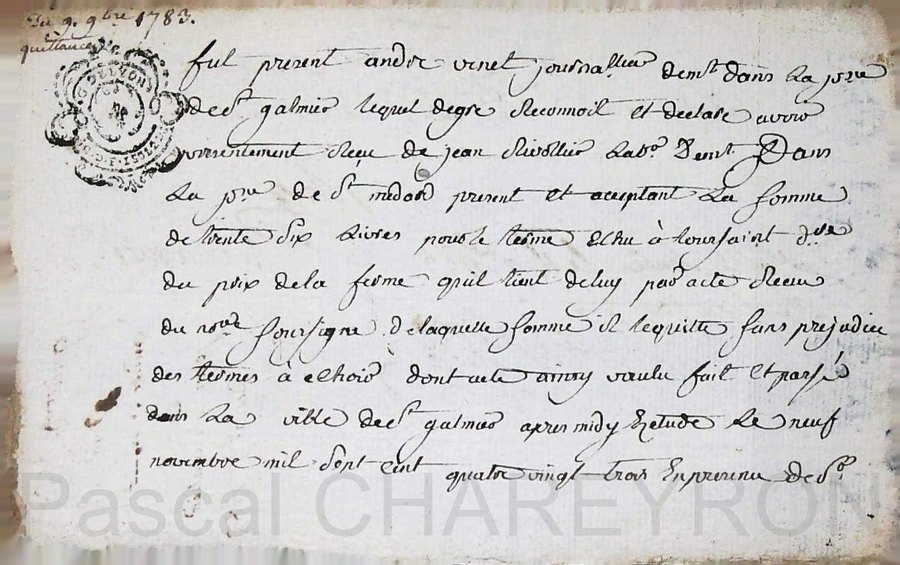 Du 9. 9bre 1783.
quittance
fut present andré venet journallier demt dans La psse
de st galmier lequel degré Reconnoit Et declare avoir
presentement Reçu de jean Rivollier Labr Demt Dans
La psse de st medard present et aceptant La somme
de trente six Livres pour le terme Echu à toussaint dre
du prix de la ferme qu'il tient deluy par acte Reçu
du nore soussigné delaquelle somme il lequitte sans prejudice
des termes à echoir dont acte ainsy voulu fait Et passé
dans La ville de st galmier apres midy Etude Le neuf
novembre mil sept cent quatre vingt trois En presence de sr
Pascal CHAREYRON